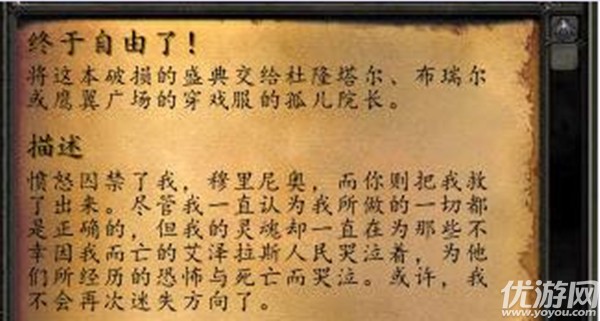 终于自由了！
将这本破损的盛典交给杜隆塔尔、布瑞尔
或鹰翼广场的穿戏服的孤儿院长。
描述
愤怒囚禁了我，穆里尼奥，而你则把我救
了出来。尽管我一直认为我所做的一切都
是正确的，但我的灵魂却一直在为那些不
幸因我而亡的艾泽拉斯人民哭泣着，为他
们所经历的恐怖与死亡而哭泣。或许，我
不会再次迷失方向了。
优游网
www.yoyou.com